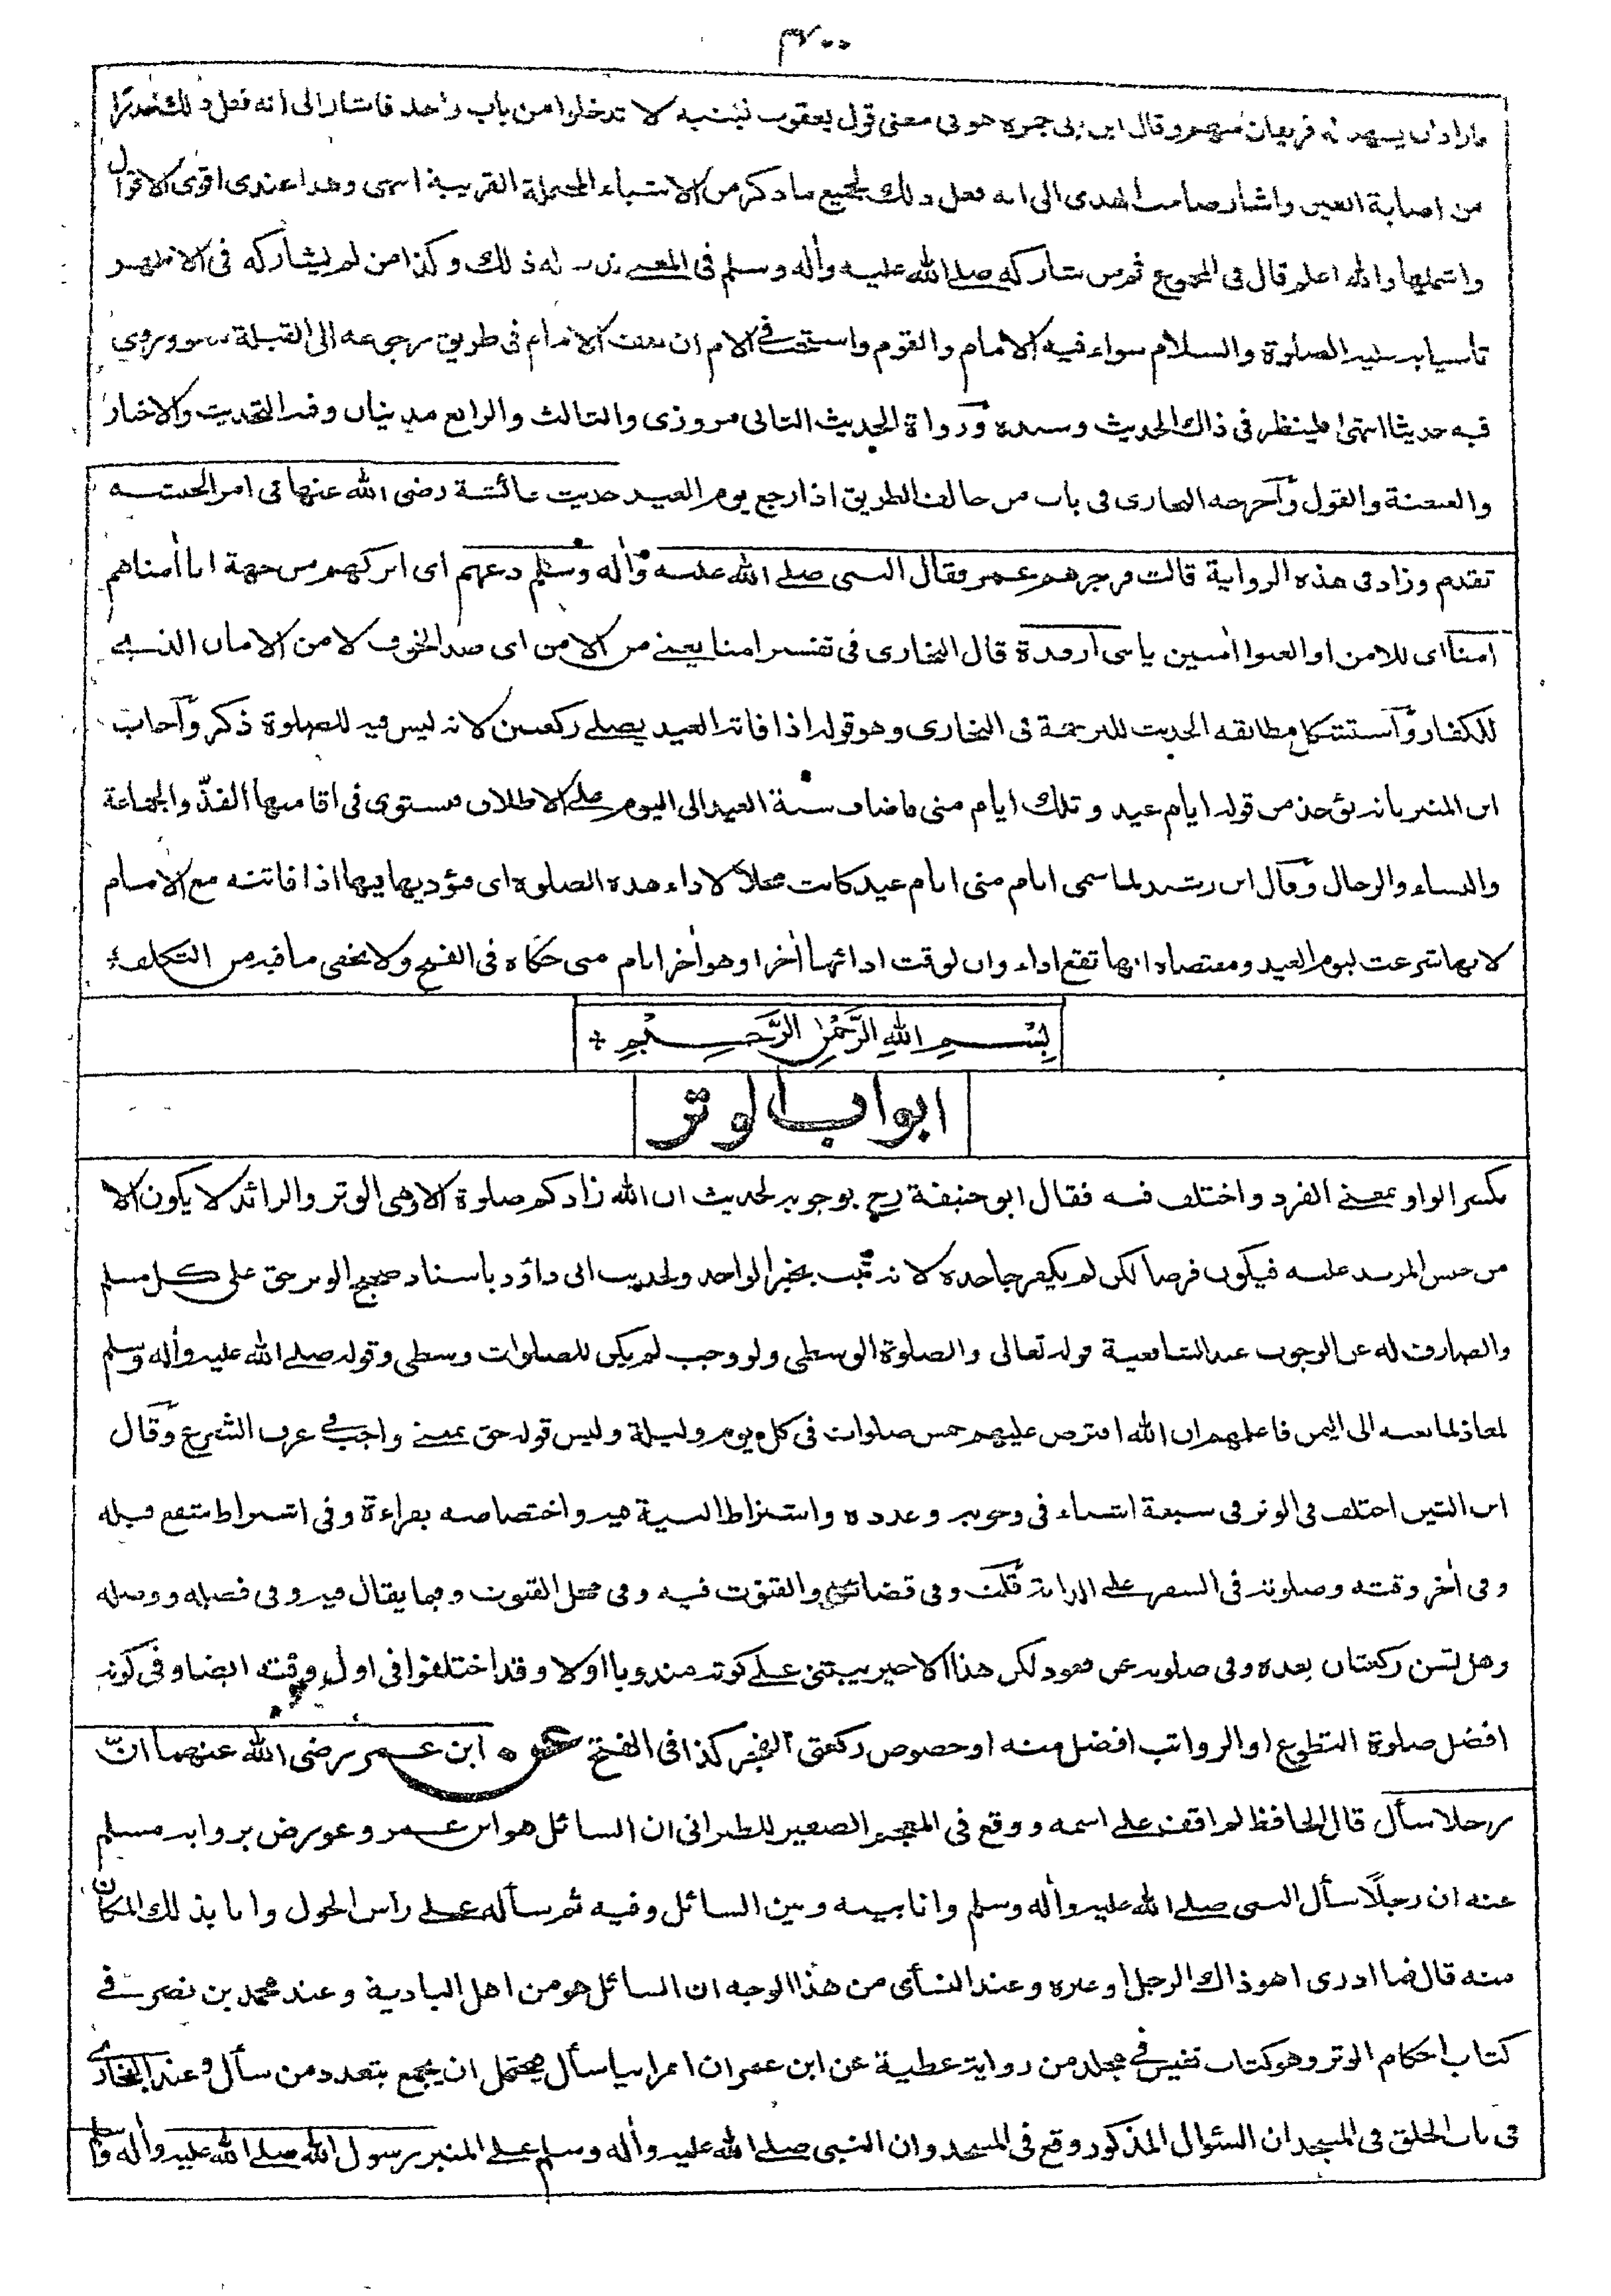 ٣٧٠٠
ما اراد ان يسهد له فريقان منهم وقال ابن ابي جمره هو في معنى قول يعقوب لبنيه لا تدخلوا من باب واحد فاشار الى انه فعل ذلك حذرا
من اصابة العين واشار صاحب الهدى الى انه فعل ذلك لجميع ما ذكر من الاشياء المحتملة القريبة انتهى وهذا عندى اقوى الاقوال
واشملها والله اعلم قال فى المجموع ثم من شاركه صلى الله عليه وأله وسلم فى المعنى ندب له ذلك وكذا من لم يشاركه فى الاظهر
تأسيا به عليه الصلوة والسلام سواء فيه الامام والقوم واستحب فى الام ان يقف الامام فى طريق رجوعه الى القبلة ويدعو وروى
فيه حديثا انتهى فلينظر فى ذاك الحديث وسنده ورواة الحديث الثانى مروزى والثالث والرابع مدنيان وفيه التحديث والاخبار
والعنعنة والقول وأخرجه البخارى فى باب من خالف الطريق اذا رجع يوم العيد حديث عائشة رضى الله عنها فى امر الحبشه
تقدم وزاد فى هذه الرواية قالت فزجرهم عمر فقال النبى صلى الله عليه وأله وسلم دعهم اى اتركهم من جهة انا أمناهم
امنا اى للامن او العبوا أمنين يا بنى ارفدة قال البخارى فى تفسير امنا يعنى من الامن اى ضد الخوف لا من الامان الذى
للكفار وأستشكل مطابقة الحديث للترجمة فى البخارى وهو قوله اذا فاته العيد يصلى ركعتين لانه ليس فيه للصلوة ذكر وأجاب
ابن المنير بانه يؤخذ من قوله ايام عيد وتلك ايام منى فاضاف سنة العيد الى اليوم على الاطلاق فيستوى فى اقامتها الفذّ والجماعة
والنساء والرجال وقال ابن رشيد لما سمى ايام منى ايام عيد كانت محلا لاداء هذه الصلوة اى فيؤديها فيها اذا فاتته مع الامام
لانها شرعت ليوم العيد ومقتضاه انها تقع اداء وان لوقت ادائها أخرا وهو أخر ايام منى حكاه فى الفتح ولا يخفى ما فيه من التكلف
بِسْمِ اللهِ الرَّحْمٰنِ الرَّحِيْمِ
ابواب الوتر
بكسر الواو بمعنى الفرد واختلف فيه فقال ابو حنيفة رح بوجوبه لحديث ان الله زادكم صلوة الا وهى الوتر والزائد لا يكون الا
من جنس المزيد عليه فيكون فرضا لكن لم يكفر جاحده لانه ثبت بخبر الواحد ولحديث ابى داؤد باسناد صحيح الوتر حق على كل مسلم
والصارف له عن الوجوب عند الشافعية قوله تعالى والصلوة الوسطى ولو وجب لم يكن للصلوات وسطى وقوله صلى الله عليه وأله وسلم
لمعاذ لما بعثه الى اليمن فاعلمهم ان الله افترض عليهم خمس صلوات فى كل يوم وليلة وليس قوله حق بمعنى واجب فى عرف الشرع وقال
ابن التين اختلف فى الوتر فى سبعة اشياء فى وجوبه وعدده واشتراط النية فيه واختصاصه بقراءة وفى اشتراط شفع قبله
وفى أخر وقته وصلوته فى السفر على الدابة قلت وفى قضائه والقنوت فيه وفى محل القنوت وفيما يقال فيه وفى فصله ووصله
وهل تسن ركعتان بعده وفى صلوته عن قعود لكن هذا الاخير يبتنى على كونه مندوبا اولا وقد اختلفوا فى اول وقته ايضا وفى كونه
افضل صلوة التطوع او الرواتب افضل منه او خصوص ركعتى الفجر كذا فى الفتح عن ابن عمر رضى الله عنهما انّ
رجلا سأل قال الحافظ لم اقف على اسمه ووقع فى المعجم الصغير للطبرانى ان السائل هو ابن عمر وعورض برواية مسلم
عنه ان رجلًا سأل النبى صلى الله عليه وأله وسلم وانا بينه وبين السائل وفيه ثم سأله على رأس الحول وانا بذلك المكان
منه قال فما ادرى اهو ذاك الرجل او غيره وعند النسأى من هذا الوجه ان السائل هو من اهل البادية وعند محمد بن نصر فى
كتاب احكام الوتر وهو كتاب نفيس فى مجلد من رواية عطية عن ابن عمر ان اعرابيا سأل فيحتمل ان يجمع بتعدد من سأل وعند البخارى
فى باب الحلق فى المسجد ان السؤال المذكور وقع فى المسجد وان النبى صلى الله عليه وأله وسلم على المنبر رسول الله صلى الله عليه وأله وسلم